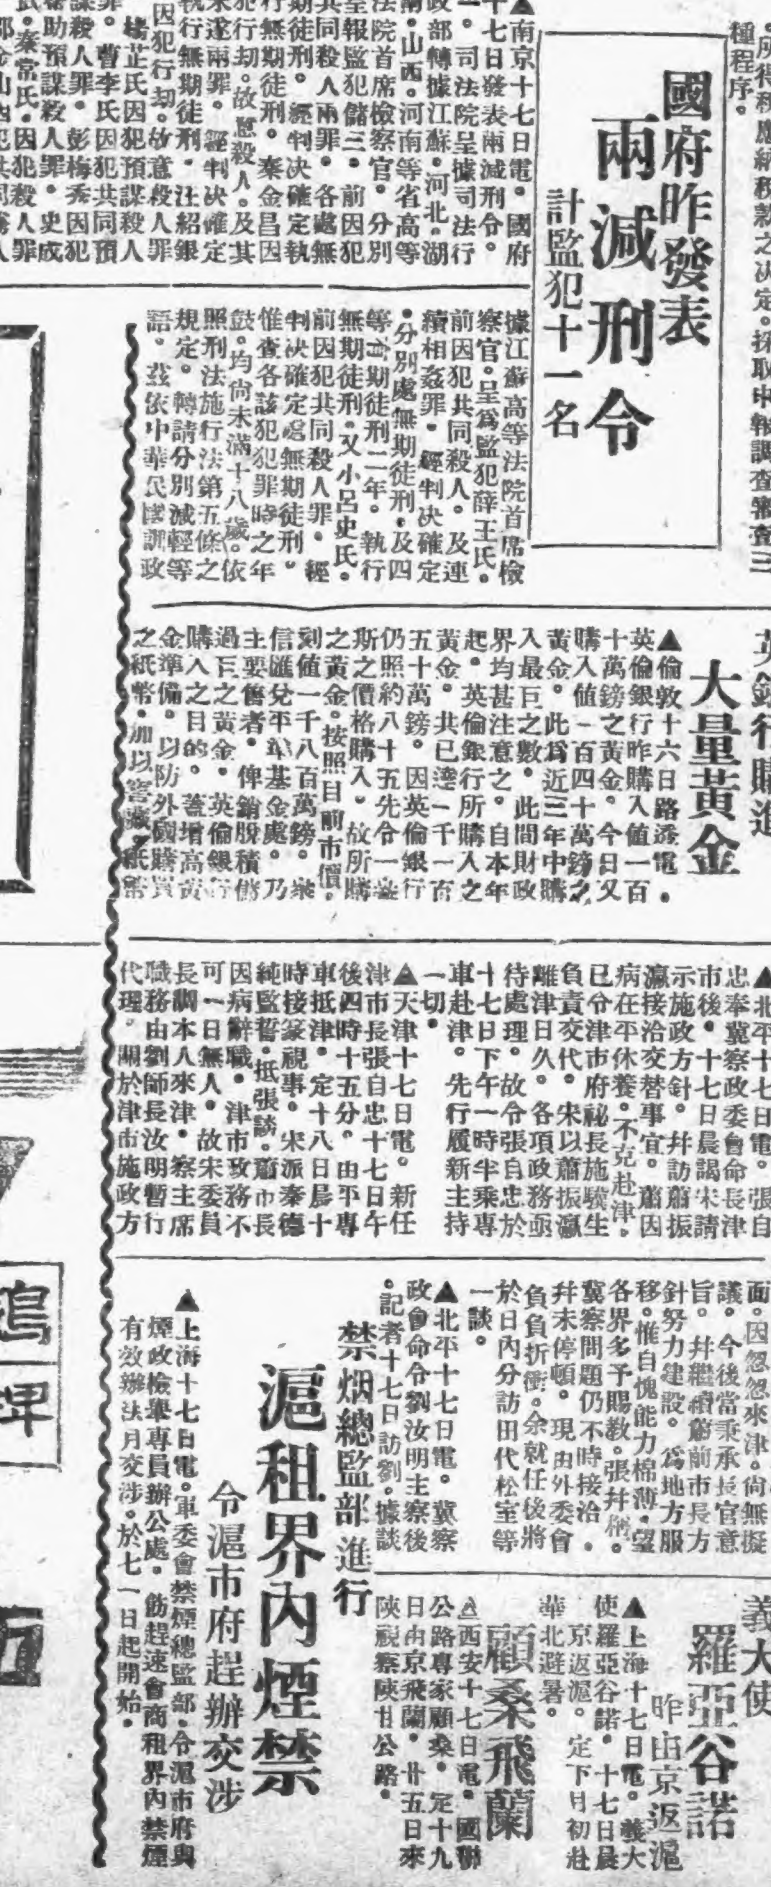 種程序。
國府昨發表
兩減刑令
計監犯十一名
▲南京十七日電。國府
十七日發表兩減刑令。
一。司法院呈據司法行
政部轉據江蘇。河北。湖
南。山西。河南等省高等
法院首席檢察官。分別
呈報監犯儲三。前因犯
共同殺人兩罪。各處無
期徒刑。經判决確定執
行無期徒刑。秦金昌因
犯行刧。故意殺人。及其
未遂兩罪。經判决確定
執行無期徒刑。汪紹銀
因犯行刧。故意殺人罪
楊芷氏因犯預謀殺人
罪。曹李氏因犯共同預
謀殺人罪。彭梅秀因犯
幫助預謀殺人罪。史成
秦常氏。因犯殺人罪
據江蘇高等法院首席檢
察官。呈爲監犯薛王氏。
前因犯共同殺人。及連
續相姦罪。經判决確定
。分別處無期徒刑。及四
等有期徒刑二年。執行
無期徒刑。又小呂史氏。
前因犯共同殺人罪。經
判决確定處無期徒刑。
惟查各該犯犯罪時之年
歲。均尚未滿十八歲。依
照刑法施行法第五條之
規定。轉請分別減輕等
語。茲依中華民國訓政
英銀行購進
大量黃金
▲倫敦十六日路透電。
英倫銀行昨購入値一百
十萬鎊之黃金。今日又
購入値一百四十萬鎊之
黃金。此爲近三年中購
入最巨之數。此間財政
界均甚注意之。自本年
起。英倫銀行所購入之
黃金。共已達一千一百
五十萬鎊。因英倫銀行
仍照約八十五先令一盎
斯之價格購入。故所購
之黃金。按照目前市價。
刻値一千八百萬鎊。衆
信匯兌平準基金處。乃
主要售者。俾銷脫積儲
過巨之黃金。英倫銀行
購入之目的。蓋增高黃
金準備。以防外國購買
之紙幣。加以窖藏。紙幣
▲北平十七日電。張自
忠奉冀察政委會命長津
市後。十七日晨謁宋請
示施政方針。幷訪蕭振
瀛接洽交替事宜。蕭因
病在平休養。不克赴津。
已令津市府祕長施驥生
負責交代。宋以蕭振瀛
離津日久。各項政務亟
待處理。故令張自忠於
十七日下午一時半乘專
車赴津。先行履新主持
一切。
▲天津十七日電。新任
津市長張自忠十七日午
後四時十五分。由平專
車抵津。定十八日晨十
時接篆視事。宋派秦德
純監誓。抵張談。蕭市長
因病辭職。津市政務不
可一日無人。故宋委員
長調本人來津。察主席
職務由劉師長汝明暫行
代理。關於津市施政方
面。因忽忽來津。尙無擬
議。今後當秉承長官意
旨。幷繼續蕭前市長方
針努力建設。爲地方服
務。惟自愧能力棉薄。望
各界多予賜敎。張幷稱。
冀察問題仍不時接洽。
幷未停頓。現由外委會
負負折衝。余就任後將
於日內分訪田代松室等
一談。
▲北平十七日電。冀察
政會命令劉汝明主察後
。記者十七日訪劉。據談
禁烟總監部進行
滬租界內煙禁
令滬市府趕辦交涉
▲上海十七日電。軍委會禁煙總監部。令滬市府與
煙政檢舉專員辦公處。飭趕速會商租界內禁煙
有效辦法月交涉。於七一日起開始。
義大使
羅亞谷諾
昨由京返滬
▲上海十七日電。義大
使羅亞谷諾。十七日晨
京返滬。定下月初赴
華北避暑。
顧桑飛蘭
▲西安十七日電。國聯
公路專家顧桑。定十九
日由京飛蘭。廿五日來
陝視察陝甘公路。